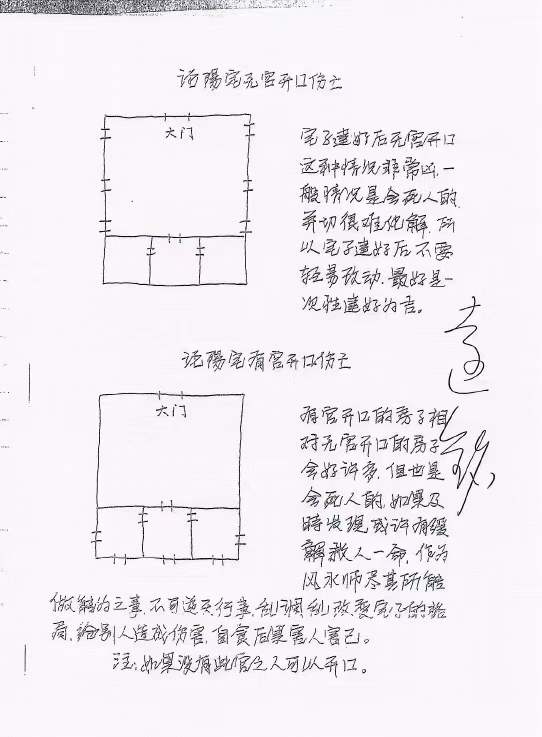 活陽宅无宫开口伤亡
大门
宅子建好后无宫开口
这种情况非常凶,一
般情况是会死人的,
并切很难化解,所
以宅子建好后不要
轻易改动,最好是一
次性建好为吉。
活陽宅有宫开口伤亡
大门
有宫开口的房子相
对无宫开口的房子
会好许多,但也是
会死人的,如果及
時发现,或许有缓
解救人一命,作为
风水师尽其所能
做能为之事,不可逆天行事,乱调乱改变宅子的格
局,给别人造成伤害,自食后果害人害己。
注:如果没有此宫之人可以开口。